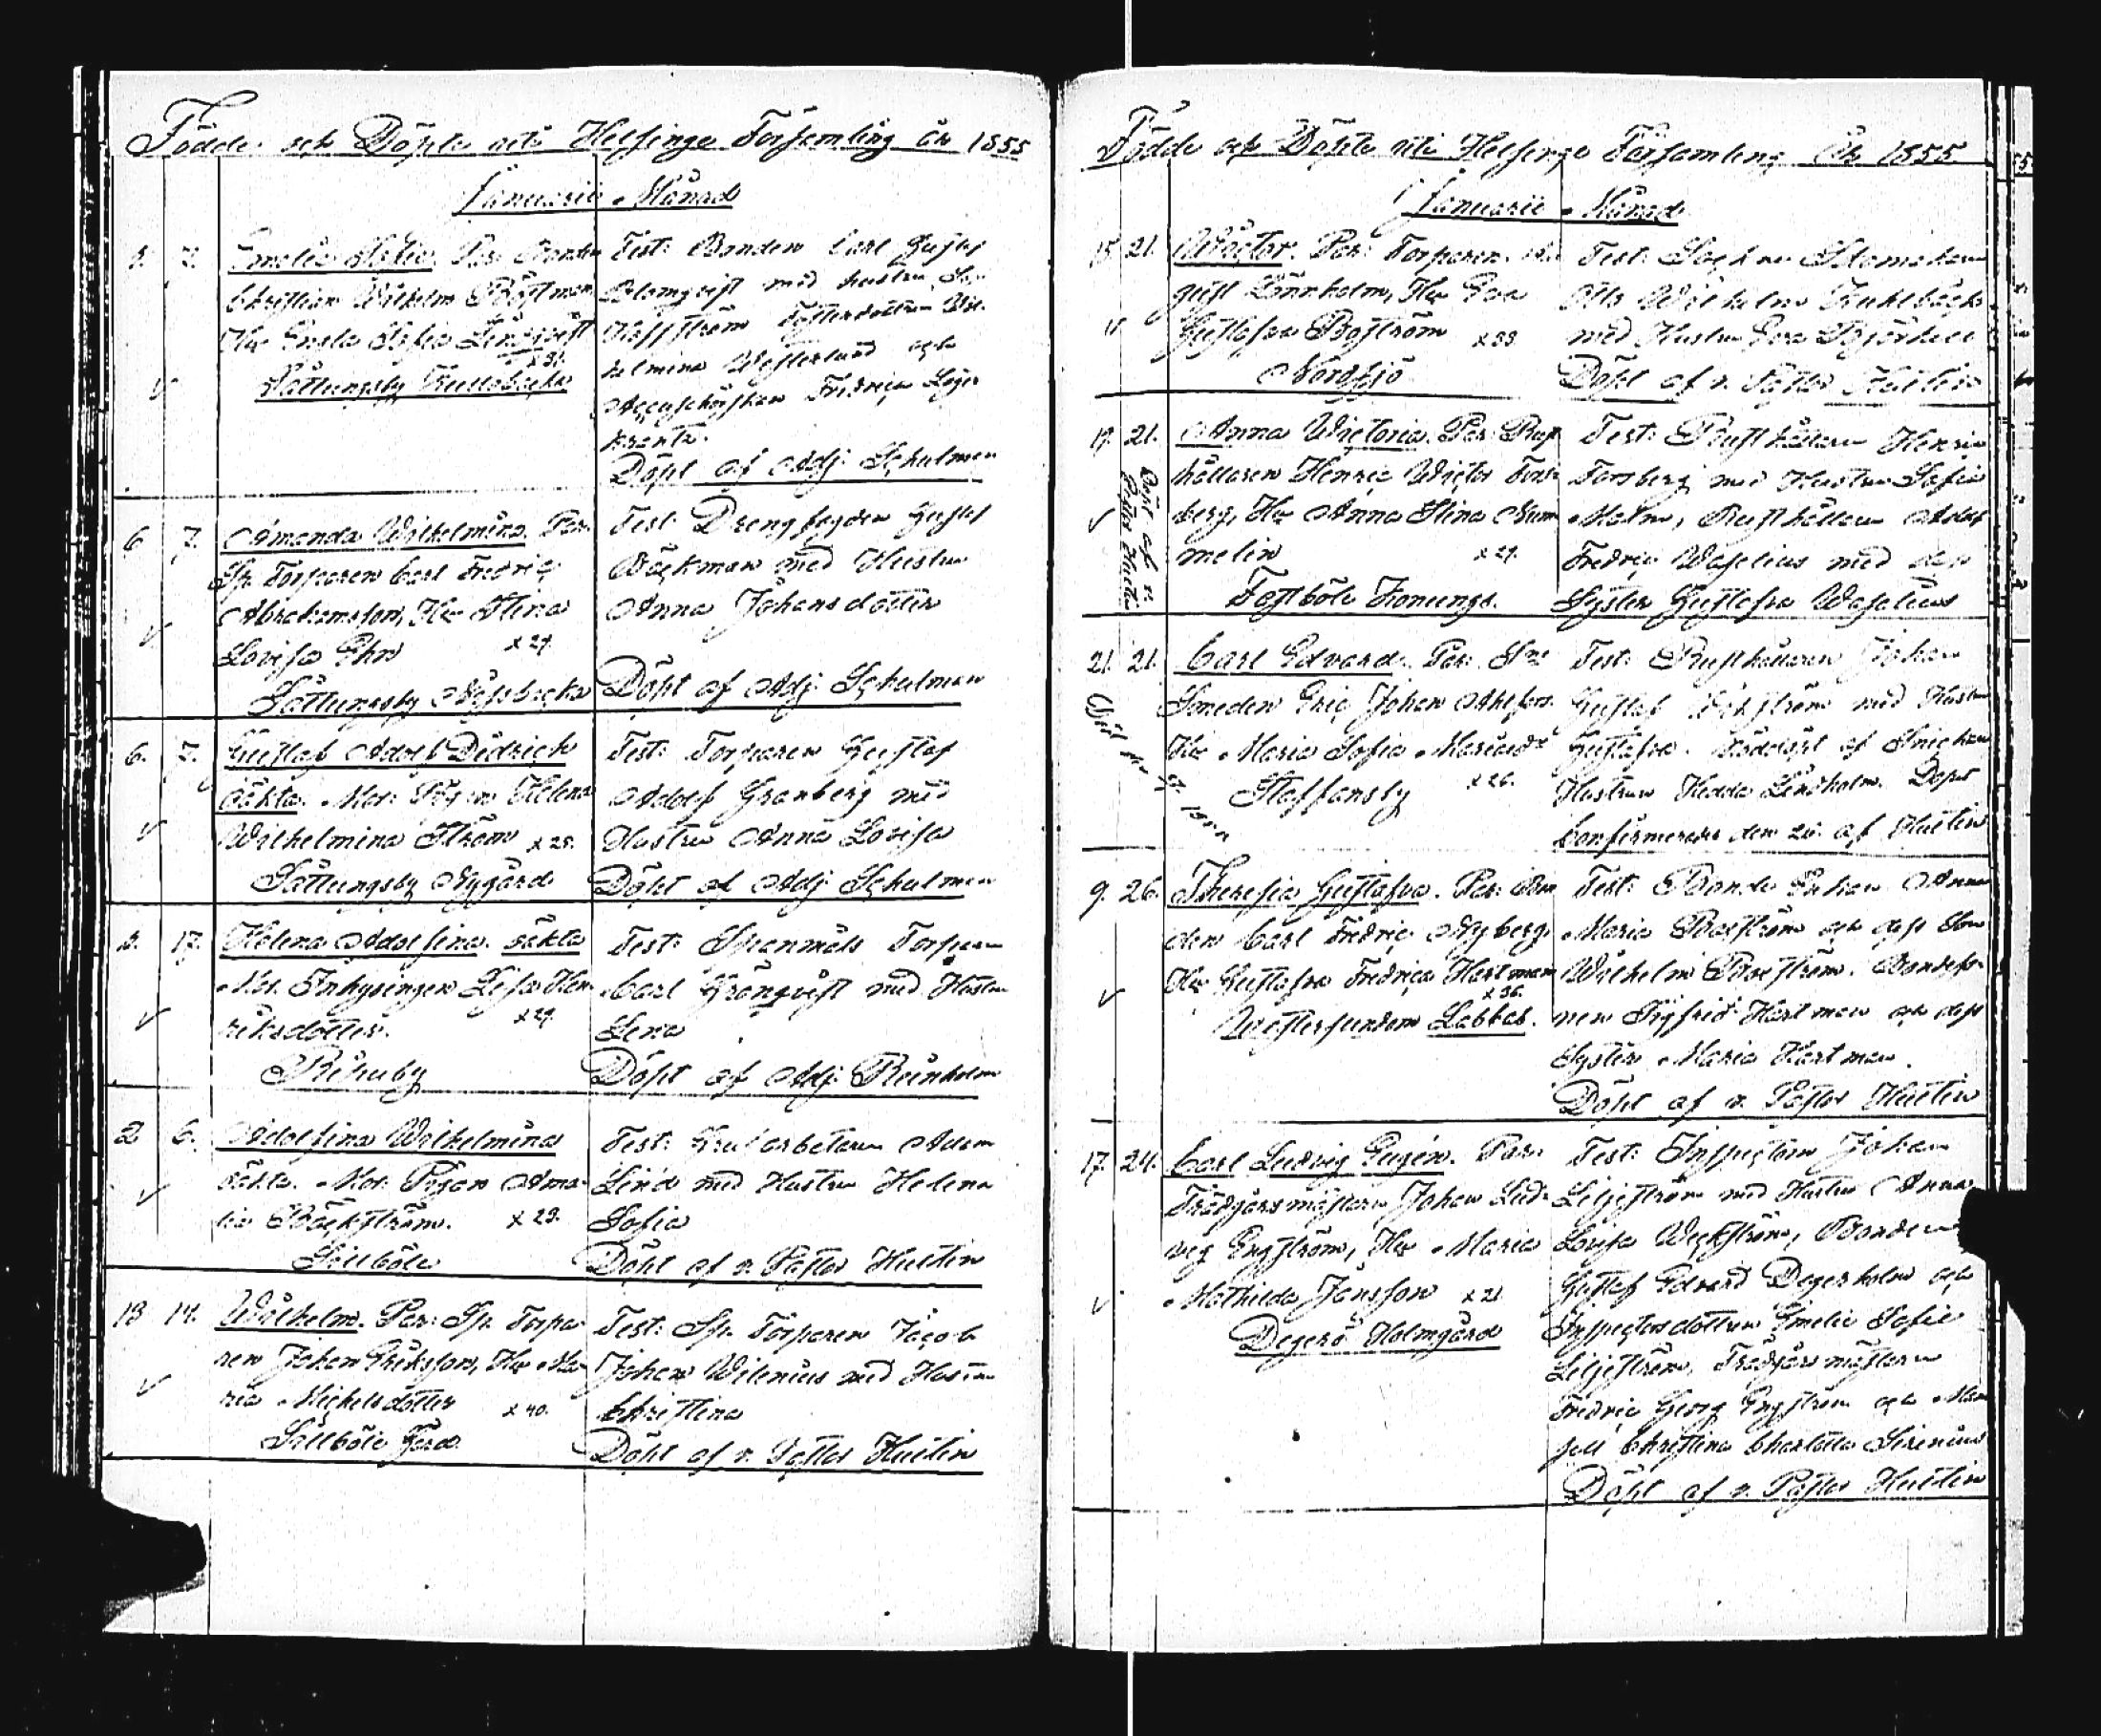 Födde och Döpte uti Helsinge Församling år 1855
Januarii Månad
7. Emelie Sofia. För: Bonden
Christian Wilhelm Böstman
Hu Engla Sofia Lindqvist
x 31.
Såttungsby
Test: Bonden Carl Gustaf
Blomqvist med hustru
Hafström Fosterdottren Wil-
helmina Westerlund och
Fredrica Lager
krantz.
Döpt af Adj. Schulman
6. 7. Amanda Wilhelmina. För:
Sp. Torparen Carl Fredric
Abrahamsson, Hu Stina
Lovisa Ehn x 27.
Såttungsby Nissbacka
Test: Drengfogden Gustaf
Bäckman med Hustru
Anna Johansdotter
Döpt af Adj. Schulman
6. 7. Gustaf Adolf Didrich
oäkta. Mor: Pigan Helena
Wilhelmina Ström x 25.
Såttungsby Nygård
Test: Torparen Gustaf
Adolf Granberg med
Hustru Anna Lovisa
Döpt af Adj. Schulman
17. Helena Adolfina. oäkta
Mor. Inhysingen Lisa Hen-
riksdotter. x 29.
Test: Spanmåls Torparen
Carl Grönqvist med Hustru
Lena
Döpt af Adj. Reinholm
2. 6. Adolfina Wilhelmina
oäkta. Mor: Pigan Ama-
lia Bäckström. x 23.
Sillböle
Test: Gruf arbetaren Adam
Lind med Hustru Helena
Sofia
Döpt af v. Pastor Hultin
13 14. Wilhelm. För: Sp. Torpa-
ren Johan Eriksson, Hu Ma-
ria Michelsdotter x 40.
Sillböle Gård
Test: Sp. Torparen Jacob
Johan Wilenius med Hustru
Christina
Döpt af v. Pastor Hultin
Födde och Döpte uti Helsinge Församling År 1855
Januarii Månad
15 21. Victor. För: Torparen
gust Lönnholm, Hu Eva
Gustafva Boström x 33
Nordsjö
Test: Sockne Skomakaren
Otto Wilhelm
med Hustru Eva
Döpt af v. Pastor Hultin
19. 21. Anna Wictoria. För: Rust
hållaren Henric Wictor Fors-
berg, Hu Anna Stina Num
melin x 27.
Fastböle Konungs.
Döpt af v.
Pastor Hultin
Test: Rusthållaren Henric
Forsberg med Hustru Sofia
Malm, Rusthållaren Adolf
Fredric Waselius med dess
Syster Gustafva Waselius
21. 21. Carl Edvard. För:
Smeden Eric Johan Ahlfors
Hu Maria Sofia
Staffansby x 26.
Test: Rusthållaren Johan
Gustaf med Hustru
Gustafva. Nöddöpt af Snickare
Hustrun Hedda Lindholm. Dopet
Confirmerades den 26. af Hultin
9. 26. Theresia Gustafva. För: Bon
den Carl Fredric Nyberg
Hu Gustafva Fredrica Hartman
x 36.
Westersundom Labbas.
Test: Bonde Enkan Anna
Maria Boström och dess Son
Wilhelm Boström. Bondeso-
nen Sigfrid Hartman och dess
Syster Maria Hartman.
Döpt af v. Pastor Hultin
17. Carl Ludvig Eugén. För:
Trädgårsmästaren Johan Lud-
vig Engström, Hu Maria
Mathilda Jansson x 21
Degerö Holmgård
Test: Inspectorn Johan
Liljeström med Hustru Anna
Lovisa Weckström, Bonden
Gustaf Edvard Degerholm och
Inspectorsdottren Emelie Sofie
Liljeström, Trädgårsmästaren
Fredric Georg Engström och Mam
sell Christina Charlotta Sirenius
Döpt af v. Pastor Hultin